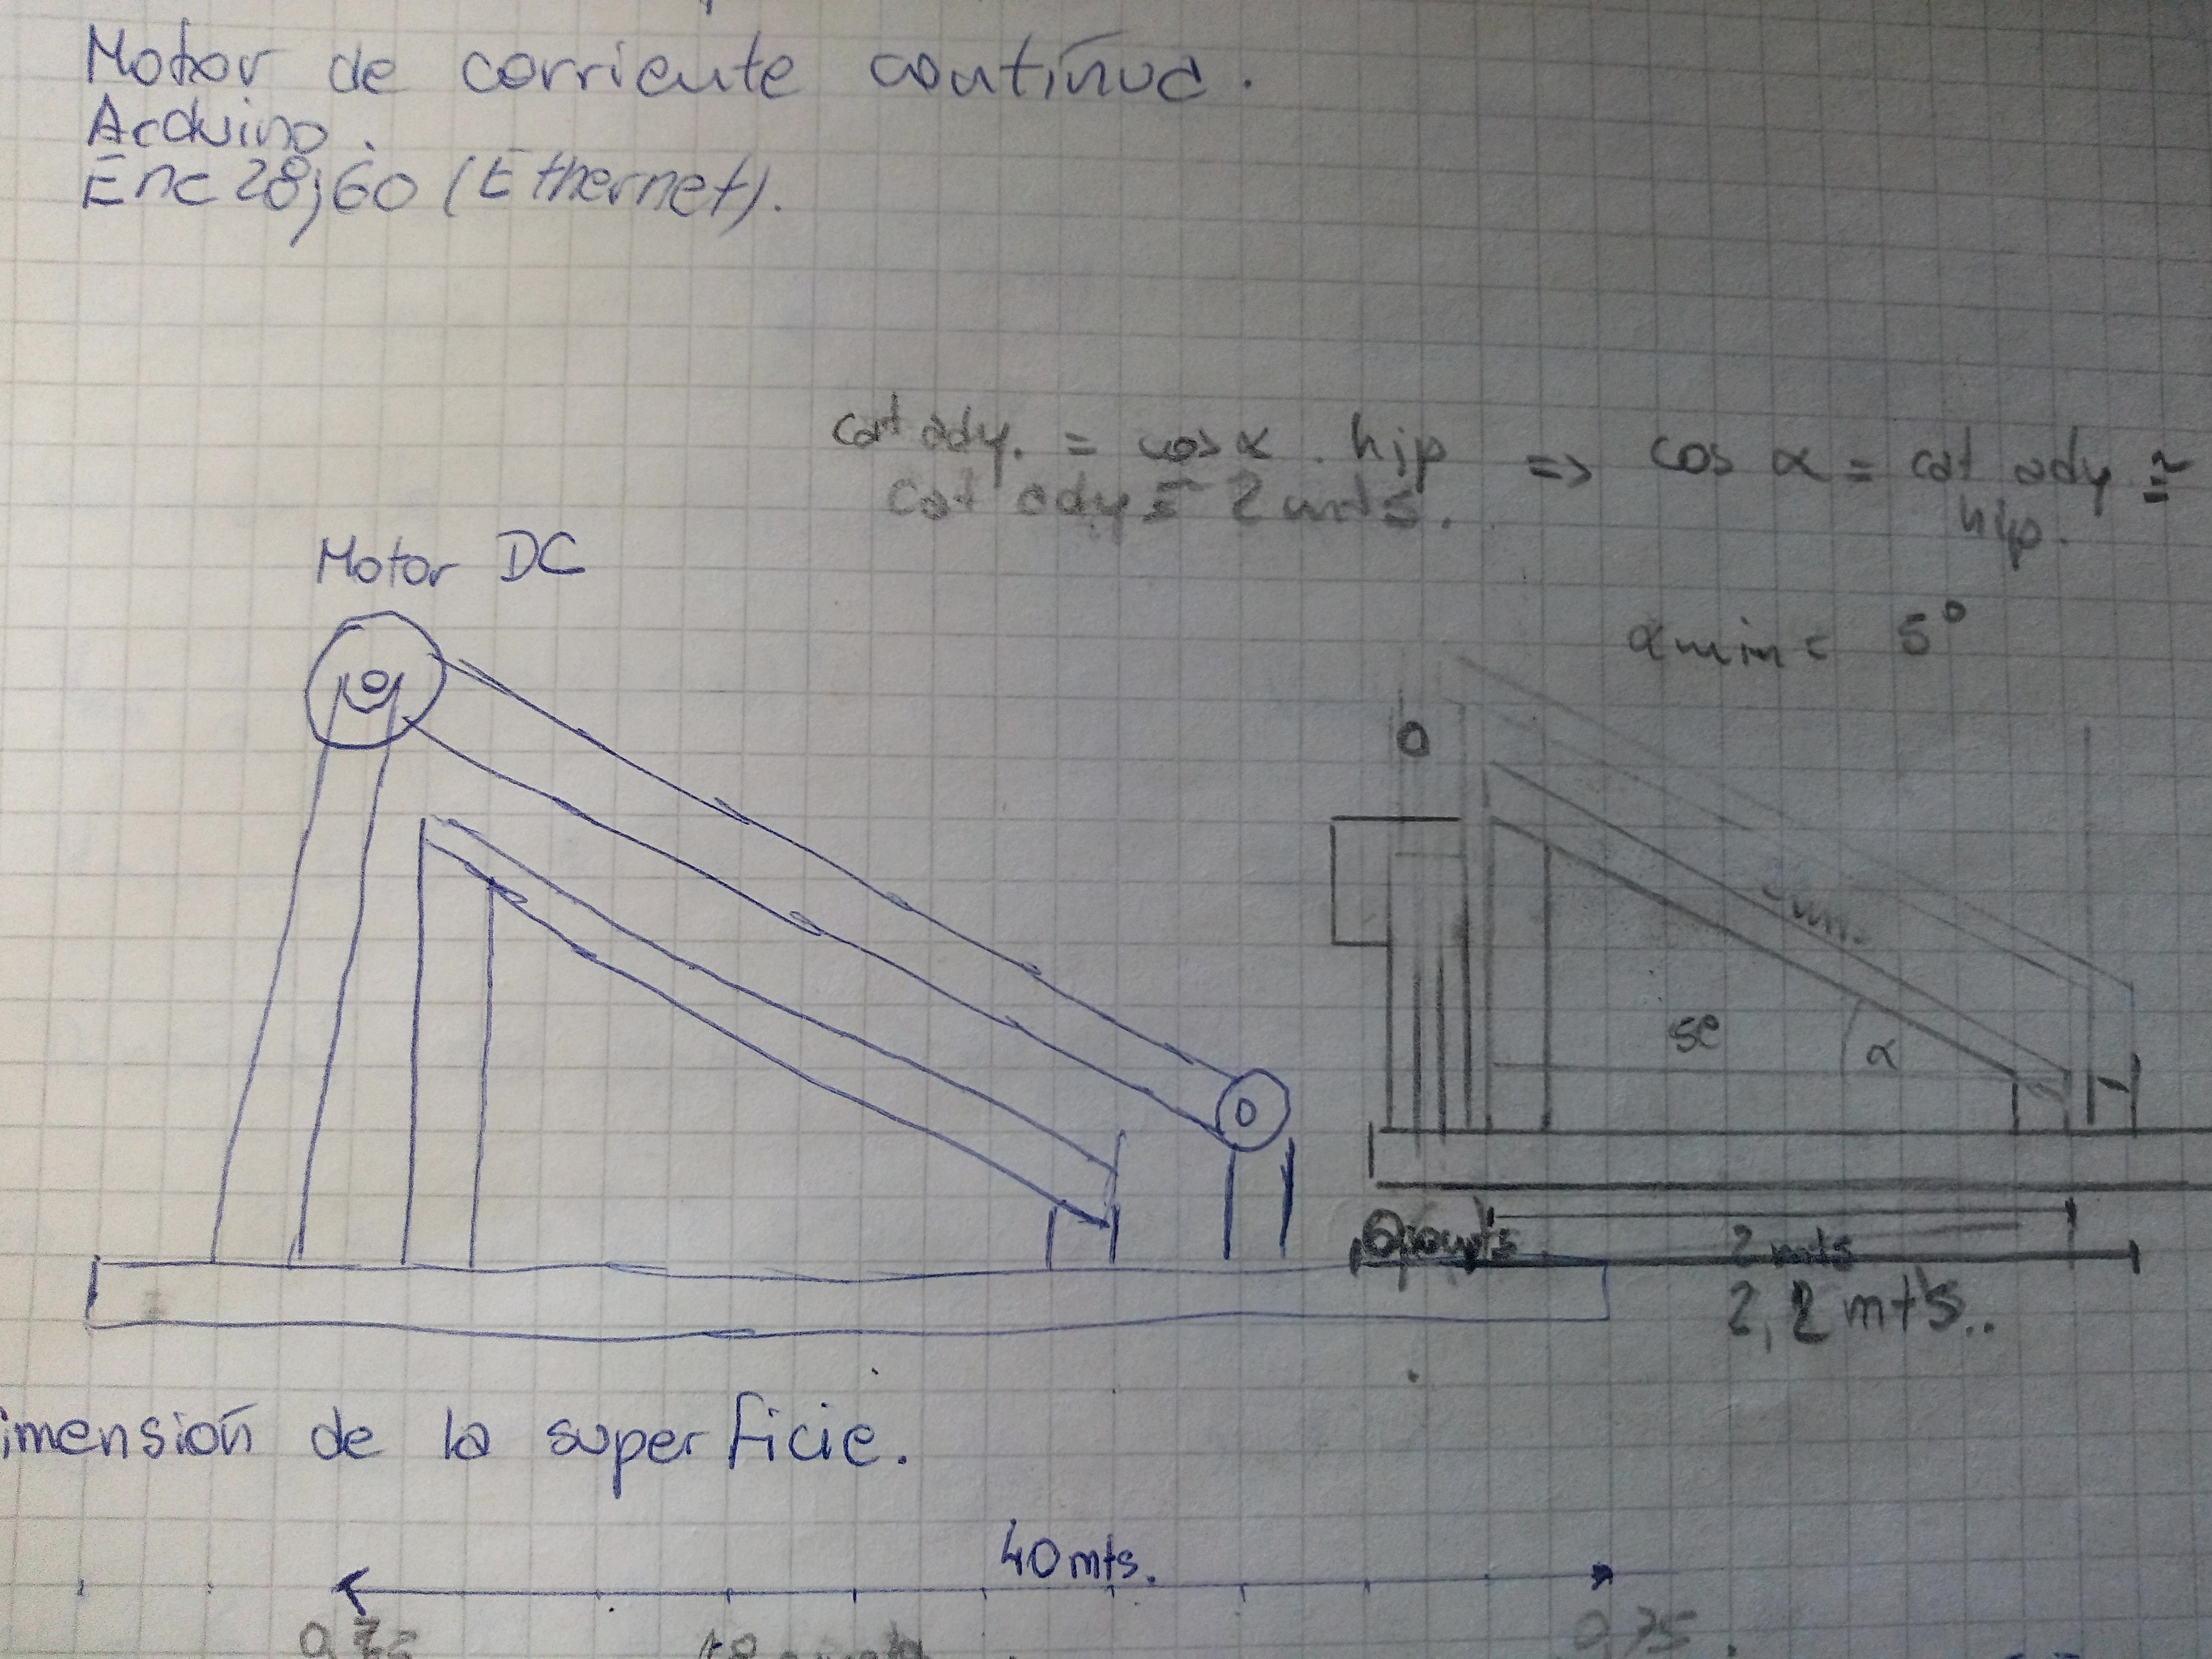 Motor de corriente contínua.
Arduino.
Enc28j60 (Ethernet).
cat ady. = cos α . hip => cos α = cat ady ≅
hip.
cat ady = 2 mts.
α min = 5°
Motor DC
O
α
2 mts
2,2 mts..
imensión de la superficie.
40 mts.
0,75
0,75.